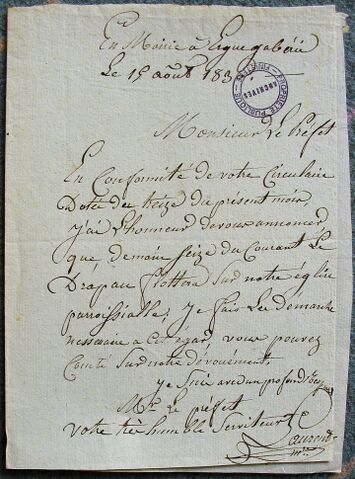 En Mairie a Ergue gabéric
Le 15 août 183
PROPRIÉTÉ PUBLIQUE
ARCHIVES
Monsieur Le Préfet
En Conformité de votre Circulaire
Datté du treize du présent mois
j'ai L'honneur de vous annoncer
que demain seize du Courant Le
Drapau flottera sur notre église
parroissialle, je fais Les demarche
nessessaire a cet égard, vous pouvez
Conté sur notre dévouement,
je suis avec un profond respect
Mr. Le préfet
votre très humble Serviteur
Laurent